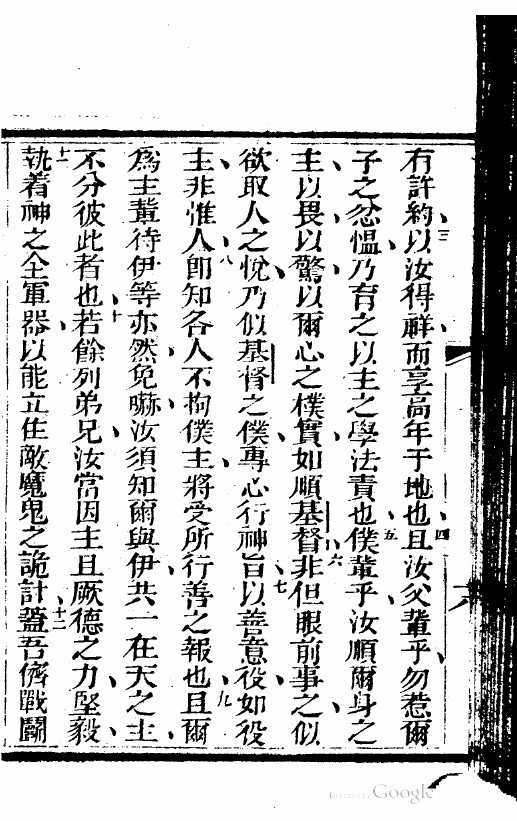 有許約以汝得祥而享高年于地也且汝父輩乎勿惹爾
三 四
子之忿慍乃育之以主之學法責也僕輩乎汝順爾身之
五
主以畏以驚以爾心之樸實如順基督非但眼前事之似
六
欲取人之悅乃似基督之僕專心行神旨以善意役如役
七
主非惟人卽知各人不拘僕主將受所行善之報也且爾
八 九
爲主輩待伊等亦然免嚇汝須知爾與伊共一在天之主
不分彼此者也若餘列弟兄汝當因主且厥德之力堅毅
十
執着神之全軍器以能立住敵魔鬼之詭計蓋吾儕戰鬭
十一 十二
六
Digitized by Google